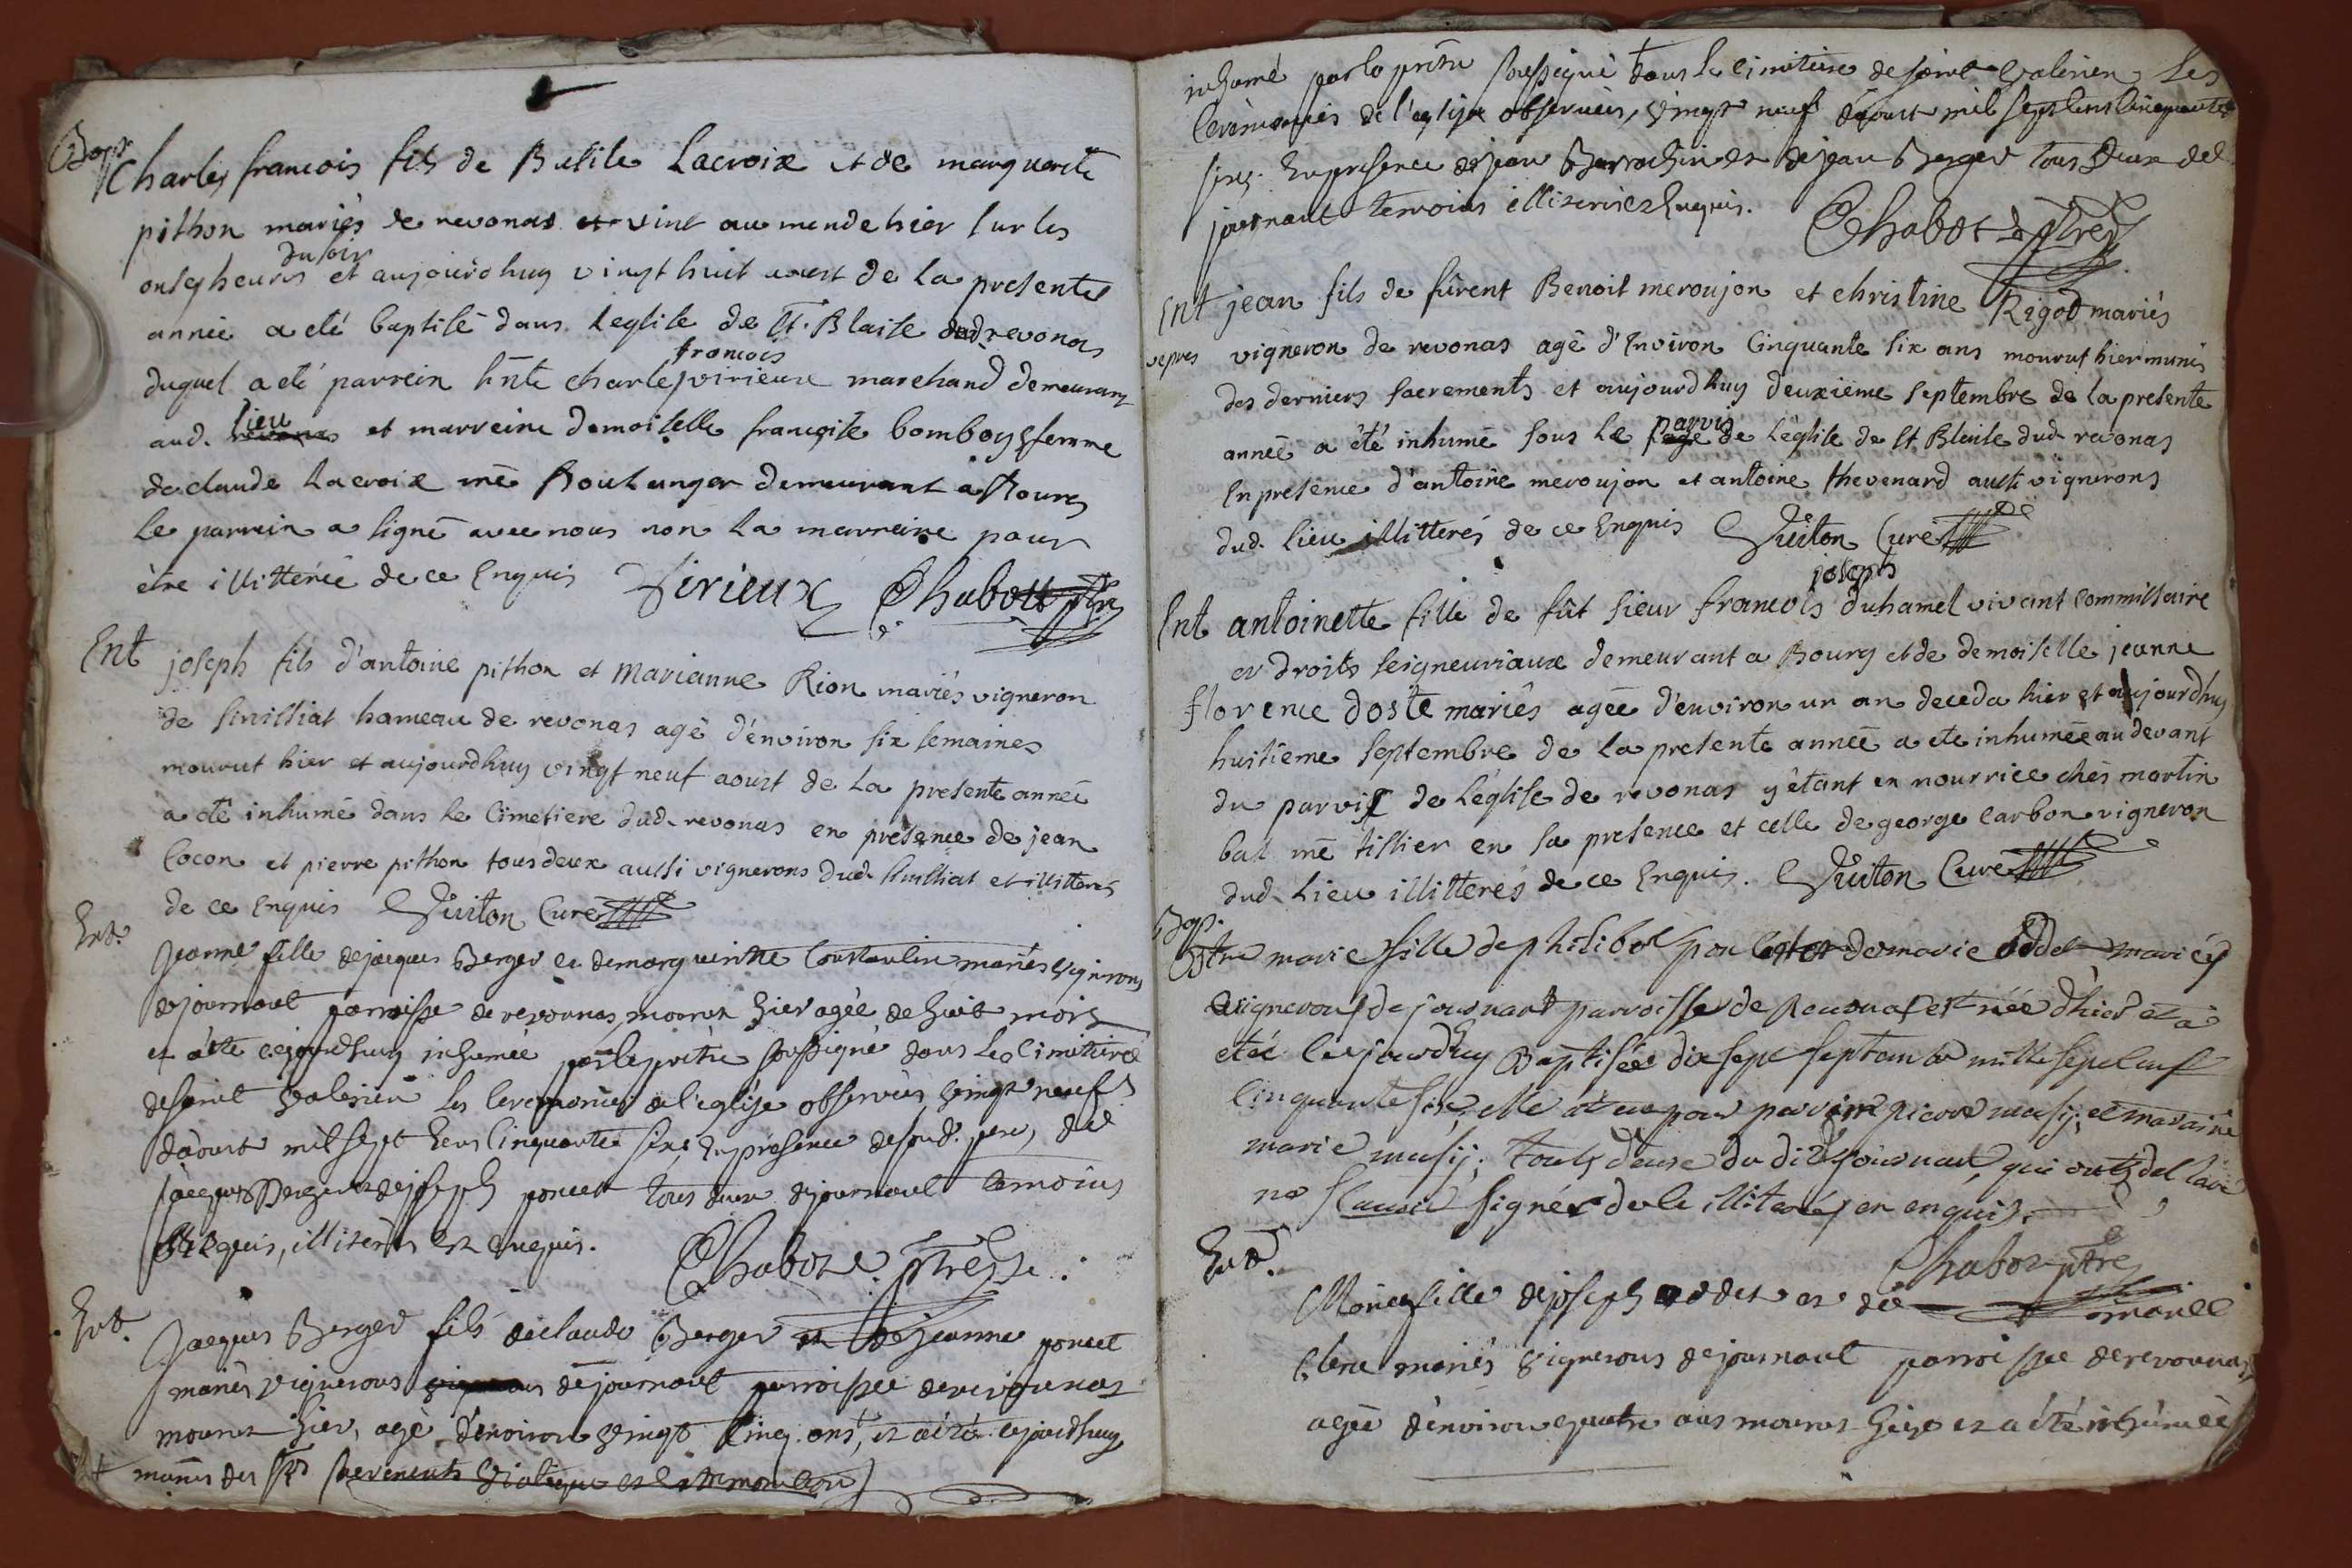 Bapt
Charles francois fils de Basile Lacroix et de marguerite
pithon mariés de revonas et vint au monde hier sur les
onse heures du soir et aujourdhuy vingt huit aoust de La presente
année a eté baptisé dans leglise de st. Blaise dud. revonas
duquel a eté parrein charle francois virieux marchand demeurant
aud. lieu et marreine demoiselle francoise bomboy femme
de claude Lacroix me Boulanger demeurant a Bourg
Le parrein a signé avec nous non La marreine pour
être illitterée de ce Enquis Virieux Chabott ptre
Ent joseph fils d'antoine pithon et Marianne Rion mariés vigneron
de Senissiat hameau de revonas agé d'environ six semaines
mourut hier et aujourdhuy vingt neuf aoust de La presente année
a eté inhumé dans le Cimetiere dud. revonas en presence de jean
Cocon et pierre pithon tous deux aussi vignerons dud. Senissiat et illitterés
de ce Enquis Guiton Curé
Ent.
Jeanne fille de jacques Berger et de marguerite mariés vignerons
de journant parroisse de revonnas, mourut hier agée de huit mois
et a été cejourdhuy inhumée par le prêtre soussigné dans le cimetière
de saint valerien les ceremonies de l'eglise observées vingt neuf
d'aoust mil sept cens cinquante six, en presence de sond. pere, de
jacques Berger et de joseph poncet tous deux de journant temoins
requis, illiterés et enquis. Chabot ptre
Ent. Jacques Berger fils de claude Berger et de jeanne poncet
mariés vignerons de journant parroisse de revonnas
mourut hier, agé d'environ vingt cinq ans, et a été cejourdhuy
munis des sts sacrements viatique et extremonction
inhumé par le prêtre soussigné dans le cimitiere de saint valerien les
Ceremonies de l'eglise observées, vingt neuf d'aoust mil sept cens cinquante
six. En presence de jean Berrochin et de jean Berger tous deux de
journant temoins illiterés Enquis. Chabot ptre
Ent jean fils de fûrent Benoit meroujon et christine Rigod mariés
vepres vigneron de revonas agé d'Environ Cinquante six ans mourut hier munis
des derniers sacrements et aujourdhuy deuxième septembre de la presente
année a été inhumé sous le parvis de L'église de st Blaise dud. revonas
En presence d'antoine meroujon et antoine thevenard aussi vignerons
dud. lieu illitterés de ce Enquis Guiton Curé
Ent antoinette fille de fût sieur francois joseph duhamel vivant commissaire
er droits seigneuriaux demeurant a Bourg et de demoiselle jeanne
florence doste mariés agée d'environ un an deceda hier et aujourdhuy
huitième septembre de La presente année a ete inhumée au devant
du parvis de L'église de revonas y étant en nourrice chés martin
bal me tissier en sa presence et celle de george carbon vigneron
dud. Lieu illitterés de ce Enquis. Guiton Curé
Bapt.
marie fille de philibert de marie oddet mariés
vignerons de journant parroisse de Revonas est née d'hier et a
etée cejourdhuy Baptisée dix sept septembre mille sept cens
cinquante six, elle a eue pour parrain pierre musy; et maraine
marie musij; touts deux du dit journant, qui onts declaré
ne scavoir signér de ce illiterés en enquis.
Chabot ptre
Ent.
Marie fille de joseph oddet et de
Clerc mariés vignerons de journant parroisse de revonnas
agée d'environ quatre ans mourut hier et a été inhumée